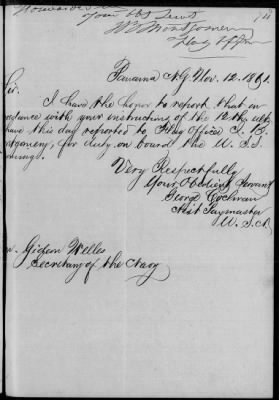 your obt Servt
Wm Montgomery
Flag Officer
Panama N.G. Nov. 12. 1861.
Sir.
I have the honor to report that on
with your instructions of the 12th ulto,
have this day reported to Flag Officer J. B.
tgomery, for duty on board the U. S. S.
ning.
Very Respectfully
Your Obedient Servant
George Cochran
Asst Paymaster
U. S. N.
n. Gideon Welles
Secretary of the Navy